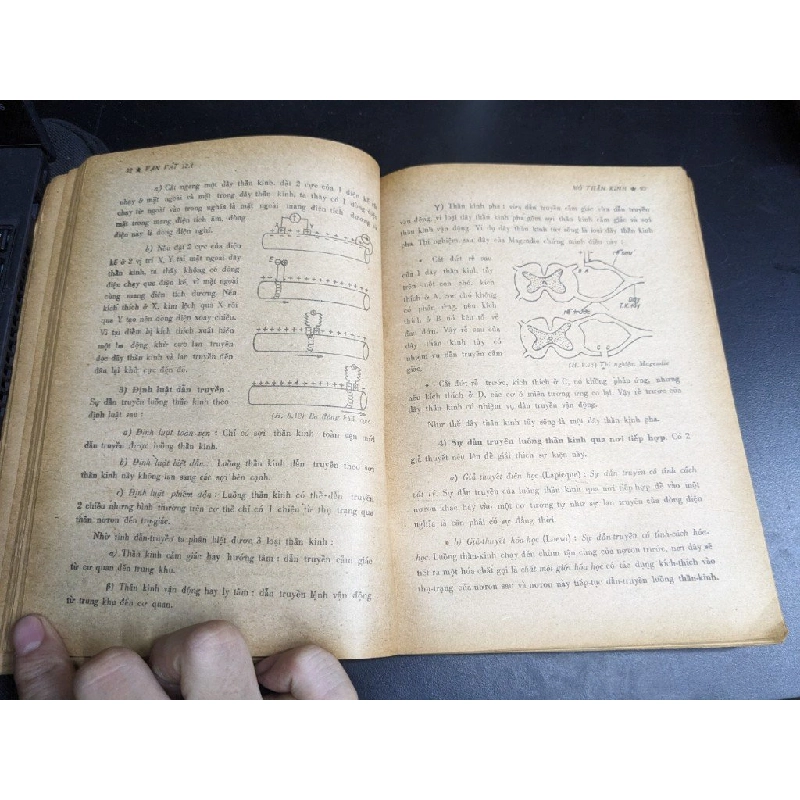 a) Cắt ngang một dây thần kinh, đặt 2 cực của 1 điện kế
chạy ở mặt ngoài và một trong dây thần kinh, ta thấy có 1 dòng điện
chạy từ ngoài vào trong nghĩa là mặt ngoài mang điện tích dương
mặt trong mang điện tích âm, dòng
điện này là dòng điện nghỉ.
b) Nếu đặt 2 cực của điện
kế ở 2 vị trí X, Y tại mặt ngoài dây
thần kinh, ta thấy không có dòng
điện chạy qua điện kế, vì mặt ngoài
cùng mang điện tích dương. Nếu
kích thích ở X, kim lệch qua X rồi
qua Y tạo nên dòng điện xoay chiều.
Vì tại điểm bị kích thích xuất hiện
một làn động khử cực lan truyền
dọc dây thần kinh và lan truyền đến
đâu lại khử cực đến đó.
3) Định luật dẫn truyền.
Sự dẫn truyền luồng thần kinh theo
định luật sau:
a) Định luật toàn vẹn: Chỉ có sợi thần kinh toàn vẹn mới
dẫn truyền được luồng thần kinh.
b) Định luật biệt dẫn: Luồng thần kinh dẫn truyền theo sợi
thần kinh này không lan sang các sợi bên cạnh.
c) Định luật phiếm dẫn: Luồng thần kinh có thể dẫn truyền
2 chiều nhưng bình thường trên cơ thể chỉ có 1 chiều từ thọ trạng qua
thân nơron đến trục giác.
Nhờ tính dẫn-truyền ta phân biệt được 3 loại thần kinh:
α). Thần kinh cảm giác hay hướng tâm: dẫn truyền cảm giác
từ cơ quan đến trung khu.
β) Thần kinh vận động hay ly tâm: dẫn truyền lệnh vận động
từ trung khu đến cơ quan.
BỘ THẦN KINH
γ) Thần kinh pha: vừa dẫn truyền cảm giác vừa dẫn truyền
vận động, vì loại dây thần kinh pha gồm sợi thần kinh cảm giác và sợi
thần kinh vận động. Ví dụ dây thần kinh tủy sống là loại dây thần kinh
pha. Thí nghiệm sau đây của Magendie chứng minh điều này:
• Cắt đứt rễ sau
của 1 dây thần kinh tủy
kích
thích ở A, cơ thể không
có phản ứng, nếu kích
thích ở B nó tỏ vẻ
đau đớn. Vậy rễ sau của
dây thần kinh tủy có
nhiệm vụ dẫn truyền cảm
giác.
Thí nghiệm Magendie
• Cắt đứt rễ trước, kích thích ở C, nó không phản ứng, nhưng
nếu kích thích ở D, các cơ ở miền tương ứng co lại. Vậy rễ trước của
dây thần kinh có nhiệm vụ dẫn truyền vận động.
Như thế dây thần kinh tủy sống là một dây thần-kinh pha.
4) Sự dẫn truyền luồng thần kinh qua nơi tiếp hợp. Có 2
giả thuyết nêu lên để giải thích sự kiện này.
a) Giả thuyết điện học (Lapicque): Sự dẫn truyền có tính cách
vật lý. Sự dẫn truyền của luồng thần kinh qua nơi tiếp hợp để vào một
nơron khác hay vào một cơ tương tự như sự lan truyền của dòng điện
nghĩa là cần phải có sự đẳng thời.
b) Giả-thuyết hóa-học (Loewi): Sự dẫn-truyền có tính-cách hóa-
học. Luồng thần-kinh chạy đến chùm tận cùng của nơron trước, nơi đây sẽ
tiết ra một hóa chất gọi là chất môi giới hóa học có tác dụng kích-thích vào
thọ-trạng của nơron sau và nơron này tiếp-tục dẫn-truyền luồng thần-kinh.